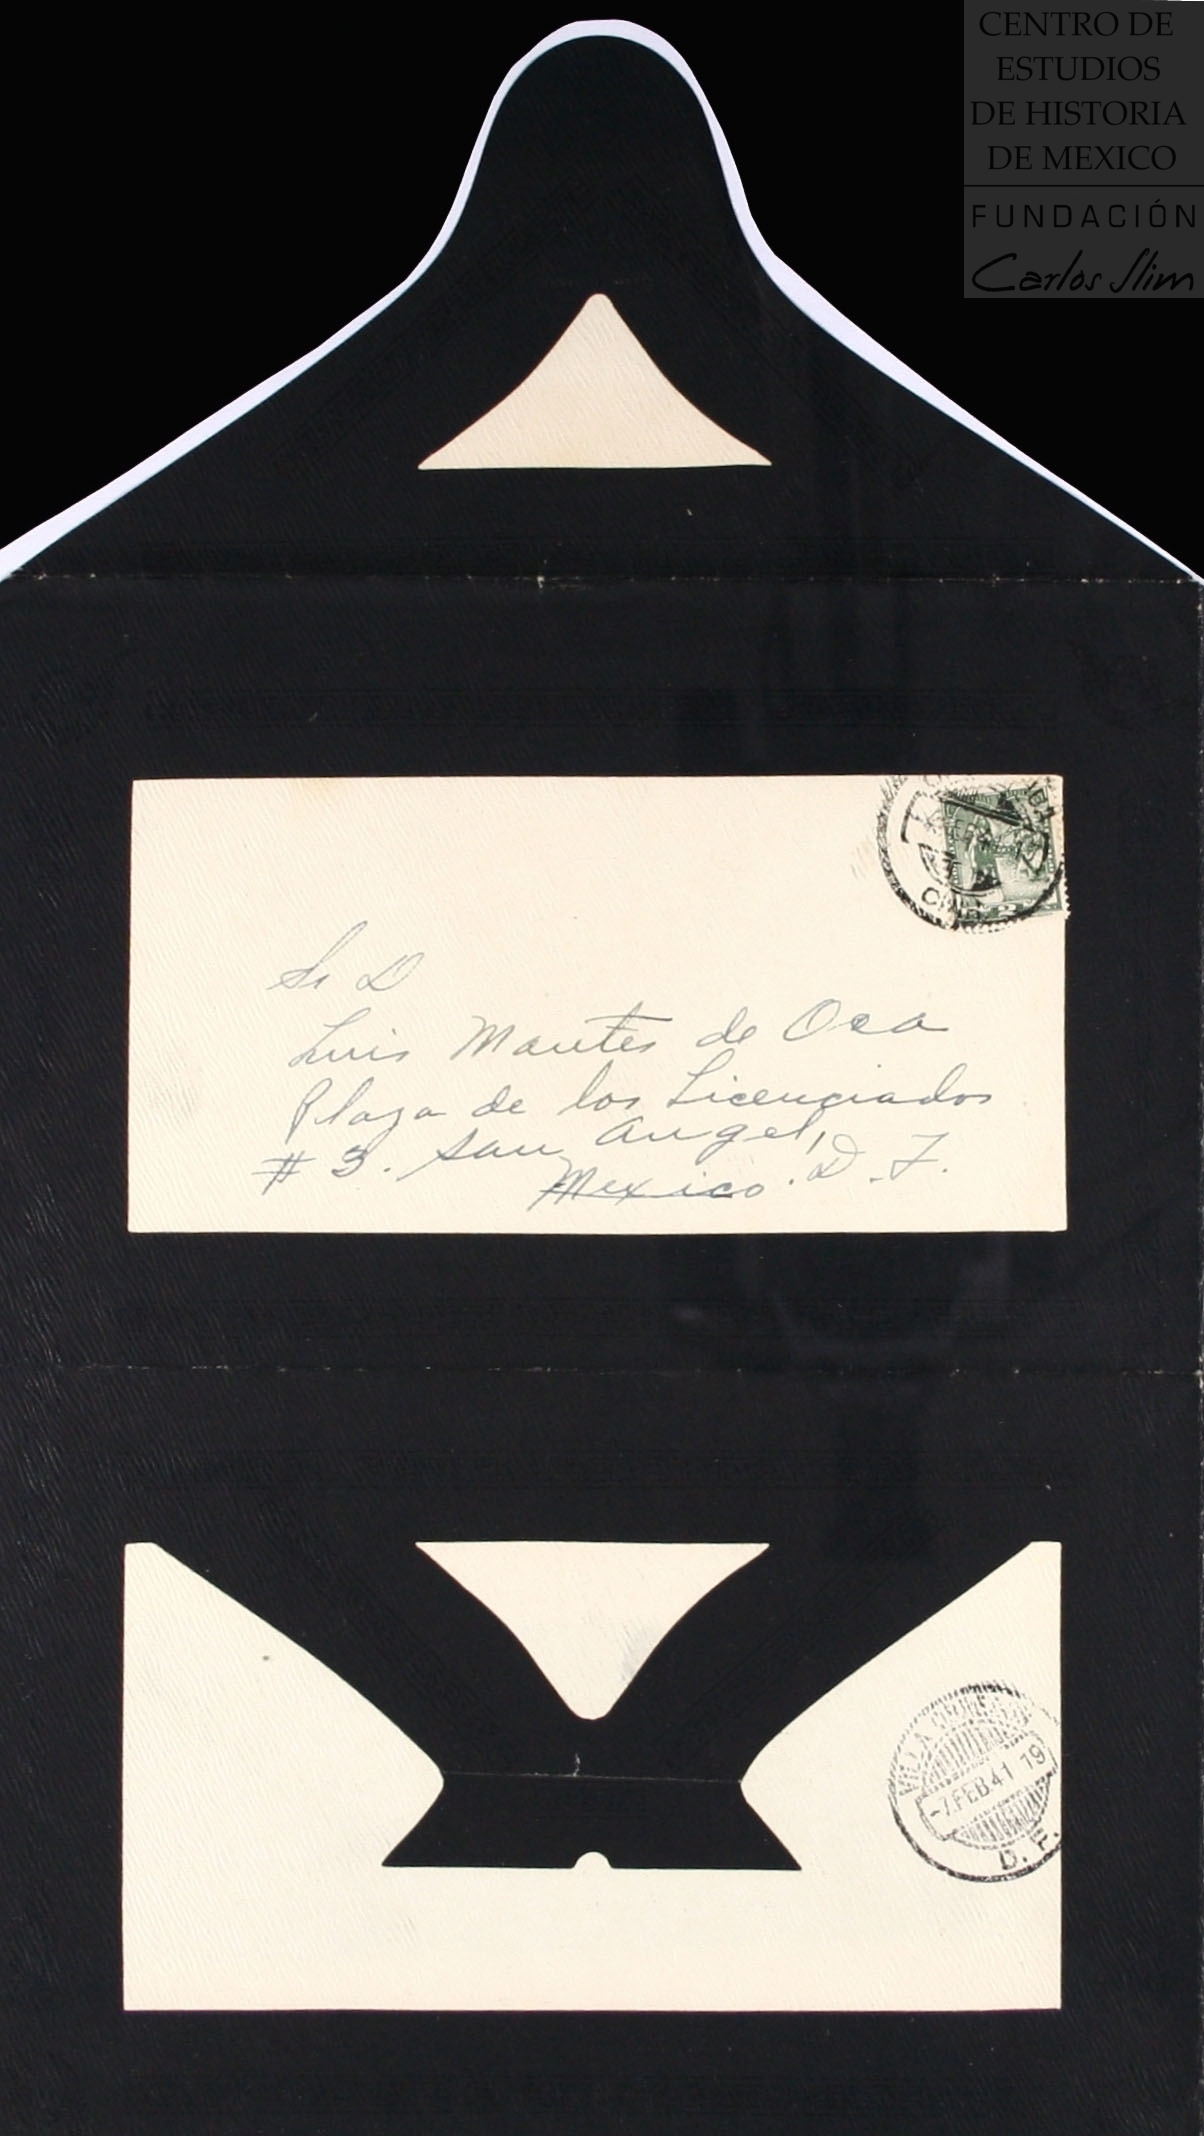 CENTRO DE
ESTUDIOS
DE HISTORIA
DE MEXICO
FUNDACIÓN
Carlos Slim
Sr D
Luis Montes de Oca
Plaza de los Licenciados
# 3. San Angel,
Mexico. D. F.
-7.FEB41 19
D. F.